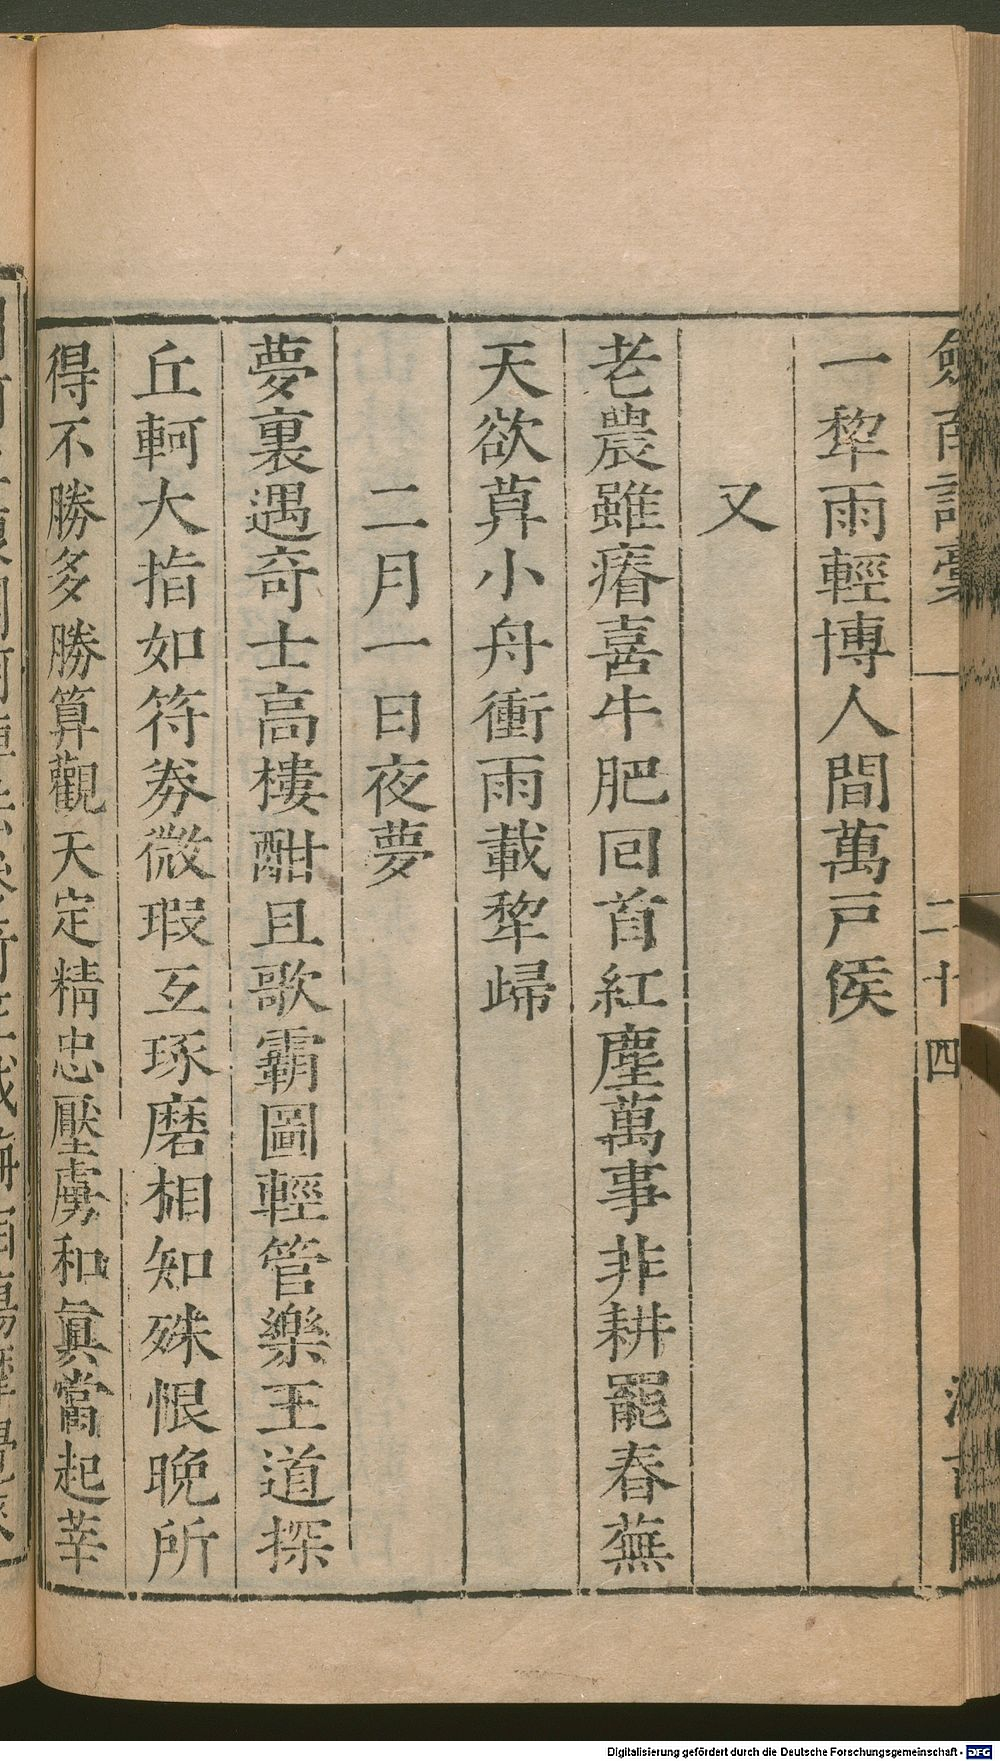 劒南詩稾 一 二十四
一犂雨輕博人間萬戸侯
又
老農雖瘠喜牛肥回首紅塵萬事非耕罷春蕪
天欲莫小舟衝雨載犂歸
二月一日夜夢
夢裏遇奇士高樓酣且歌霸圖輕管樂王道探
丘軻大指如符券微瑕互琢磨相知殊恨晚所
得不勝多勝算觀天定精忠壓虜和眞當起莘
Digitalisierung gefördert durch die Deutsche Forschungsgemeinschaft - DFG